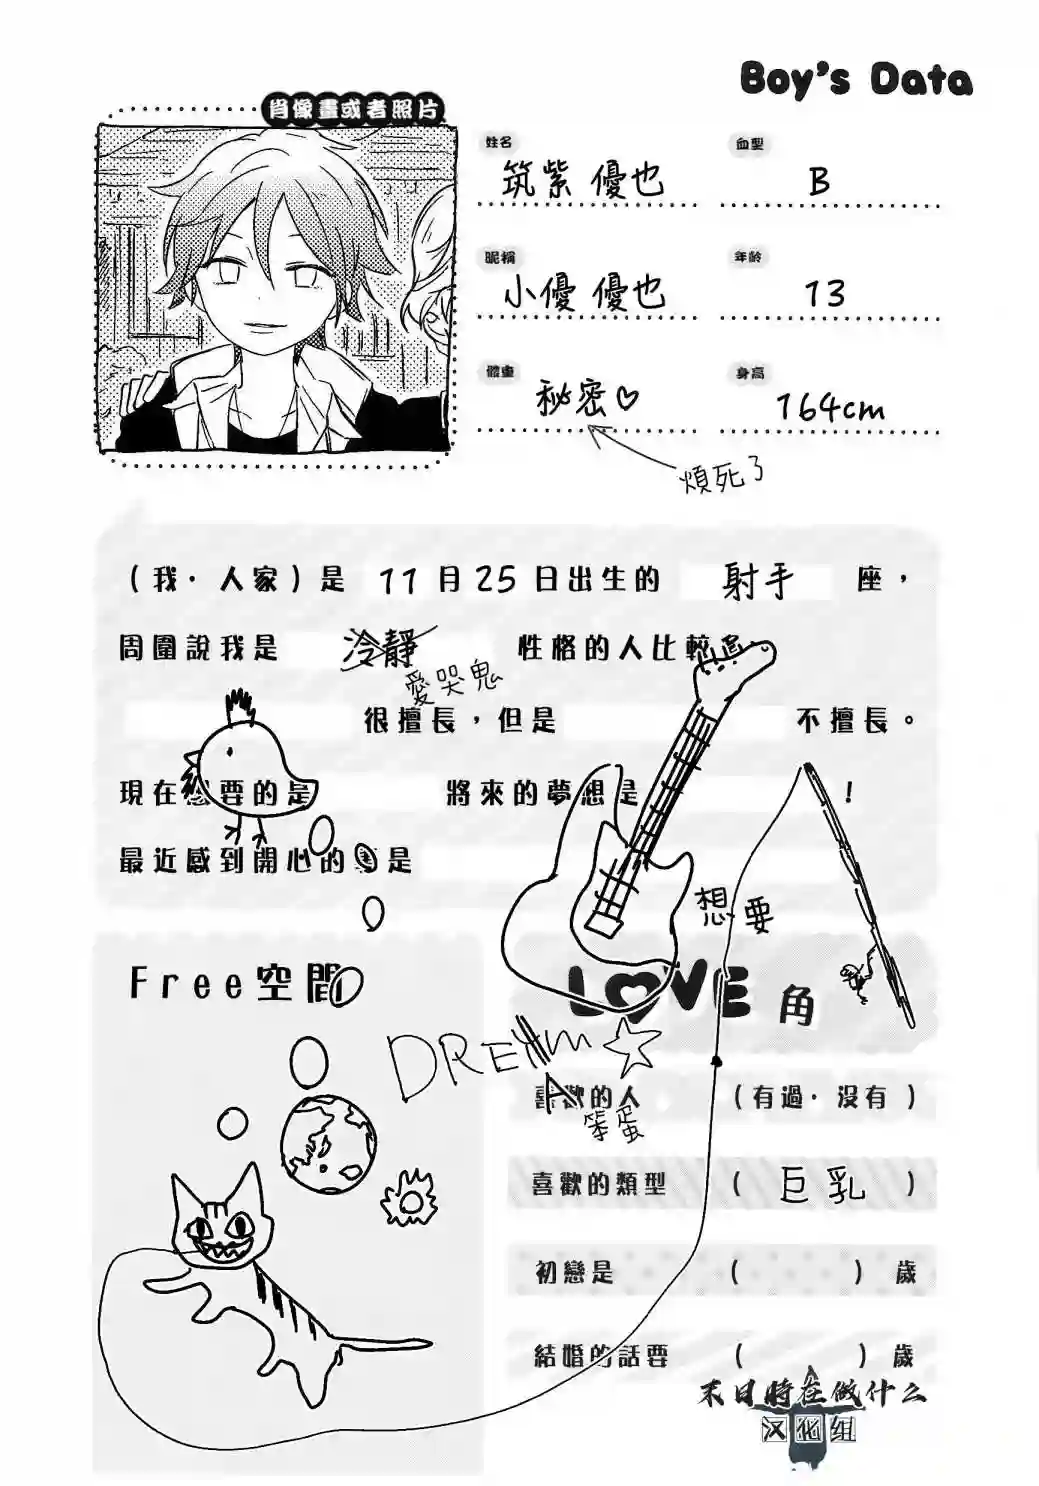 Boy's Data
肖像畫或者照片
姓名 血型
筑紫 優也 B
昵稱 年齡
小優 優也 13
體重 身高
秘密♡ 164cm
煩死了
（我・人家）是 11月25日出生的 射手 座，
周圍說我是 冷靜 性格的人比較多
愛哭鬼
很擅長，但是 不擅長。
現在想要的是 將來的夢想是 ！
最近感到開心的事是
想要
Free空間
LOVE 角
DREAM
A
喜歡的人 （有過・沒有）
笨蛋
喜歡的類型 （ 巨乳 ）
初戀是 （ ） 歲
結婚的話要 （ ） 歲
末日時在做什么
汉化组